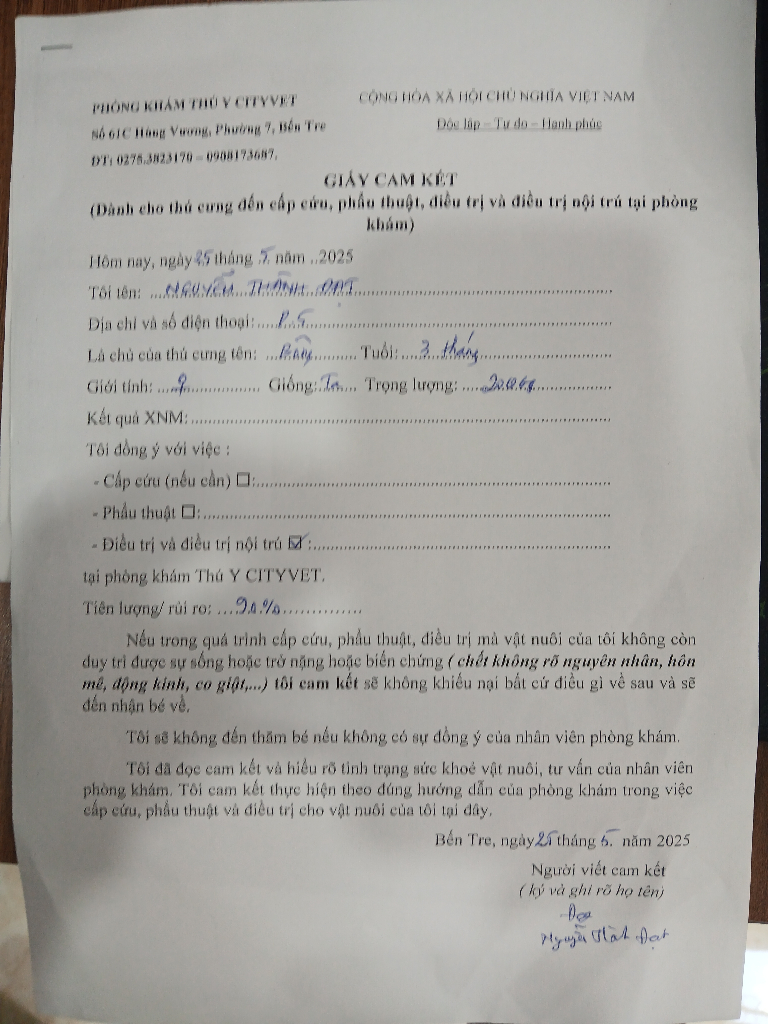 PHÒNG KHÁM THÚ Y CITYVET
CỘNG HÒA XÃ HỘI CHỦ NGHĨA VIỆT NAM
Số 61C Hùng Vương, Phường 7, Bến Tre
Độc lập – Tự do – Hạnh phúc
ĐT: 0275.3823170 – 0908173687.
GIẤY CAM KẾT
(Dành cho thú cưng đến cấp cứu, phẩu thuật, điều trị và điều trị nội trú tại phòng
khám)
Hôm nay, ngày 25 tháng 5 năm ..2025
Tôi tên: ...NGUYỄN THÀNH ĐẠT
Địa chỉ và số điện thoại:.... P.5
Là chủ của thú cưng tên: ... Tuổi:....3 tháng
Giới tính: ....♀ Giống: Ta Trọng lượng:
Kết quả XNM:
Tôi đồng ý với việc :
- Cấp cứu (nếu cần) ☐:
- Phẩu thuật ☐:
- Điều trị và điều trị nội trú ☑ :
tại phòng khám Thú Y CITYVET.
Tiên lượng/ rủi ro: ....90%
Nếu trong quá trình cấp cứu, phẩu thuật, điều trị mà vật nuôi của tôi không còn
duy trì được sự sống hoặc trở nặng hoặc biến chứng ( chết không rõ nguyên nhân, hôn
mê, động kinh, co giật,...) tôi cam kết sẽ không khiếu nại bất cứ điều gì về sau và sẽ
đến nhận bé về.
Tôi sẽ không đến thăm bé nếu không có sự đồng ý của nhân viên phòng khám.
Tôi đã đọc cam kết và hiểu rõ tình trạng sức khoẻ vật nuôi, tư vấn của nhân viên
phòng khám. Tôi cam kết thực hiện theo đúng hướng dẫn của phòng khám trong việc
cấp cứu, phẩu thuật và điều trị cho vật nuôi của tôi tại đây.
Bến Tre, ngày 25 tháng 5 năm 2025
Người viết cam kết
( ký và ghi rõ họ tên)
Đạt
Nguyễn Thành Đạt